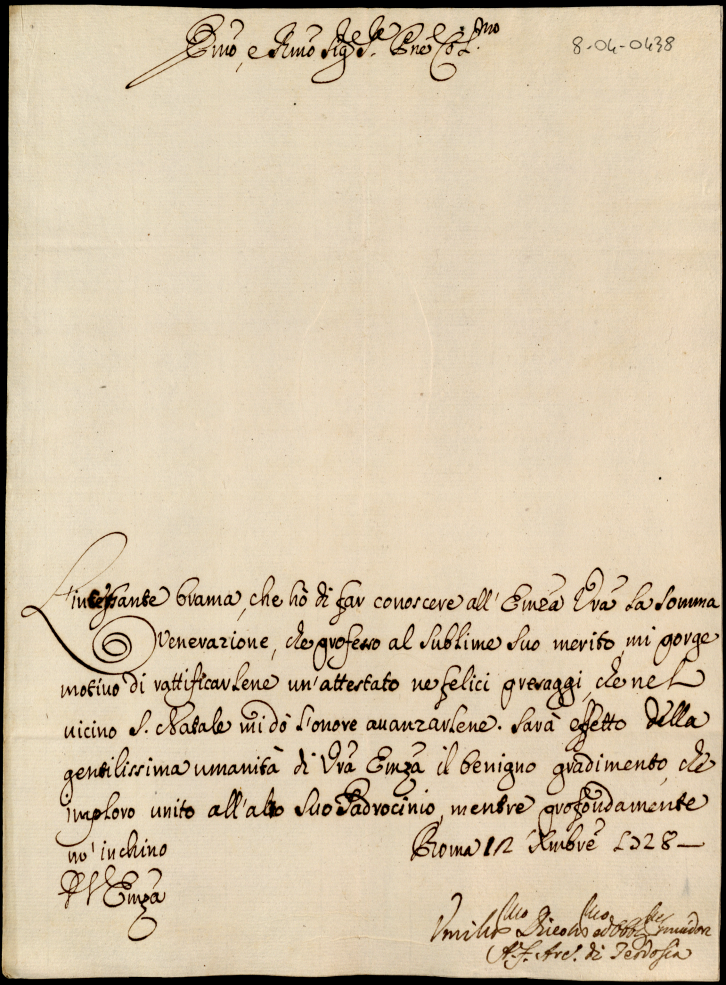 Emo, e Rmo Sig.re S.re Pne Col.mo
8-04-0438
L'incessante brama, che hò di far conoscere all'Emza Vrã la somma
Venerazione, che professo al sublime suo merito, mi porge
motivo di rattificarlene un'attestato ne felici presaggi, che nel
vicino S. Natale mi dò l'onore avanzarlene. Sarà effetto della
gentilissima umanità di Vrã Emza il benigno gradimento, che
imploro unito all'alto suo Padrocinio, mentre profondamente
m'inchino
Roma 12 Xmbre 1728
D V Emza
Umiliss.mo Divotiss.mo ed Obb.mo Servidor
A. F. Arc. di Teodosia